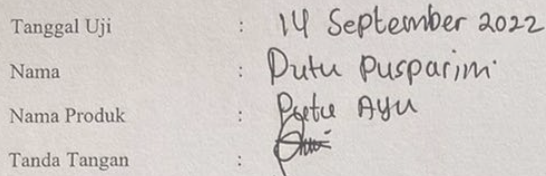 Tanggal Uji : 14 September 2022
Nama : Putu Pusparini
Nama Produk : Putu Ayu
Tanda Tangan :